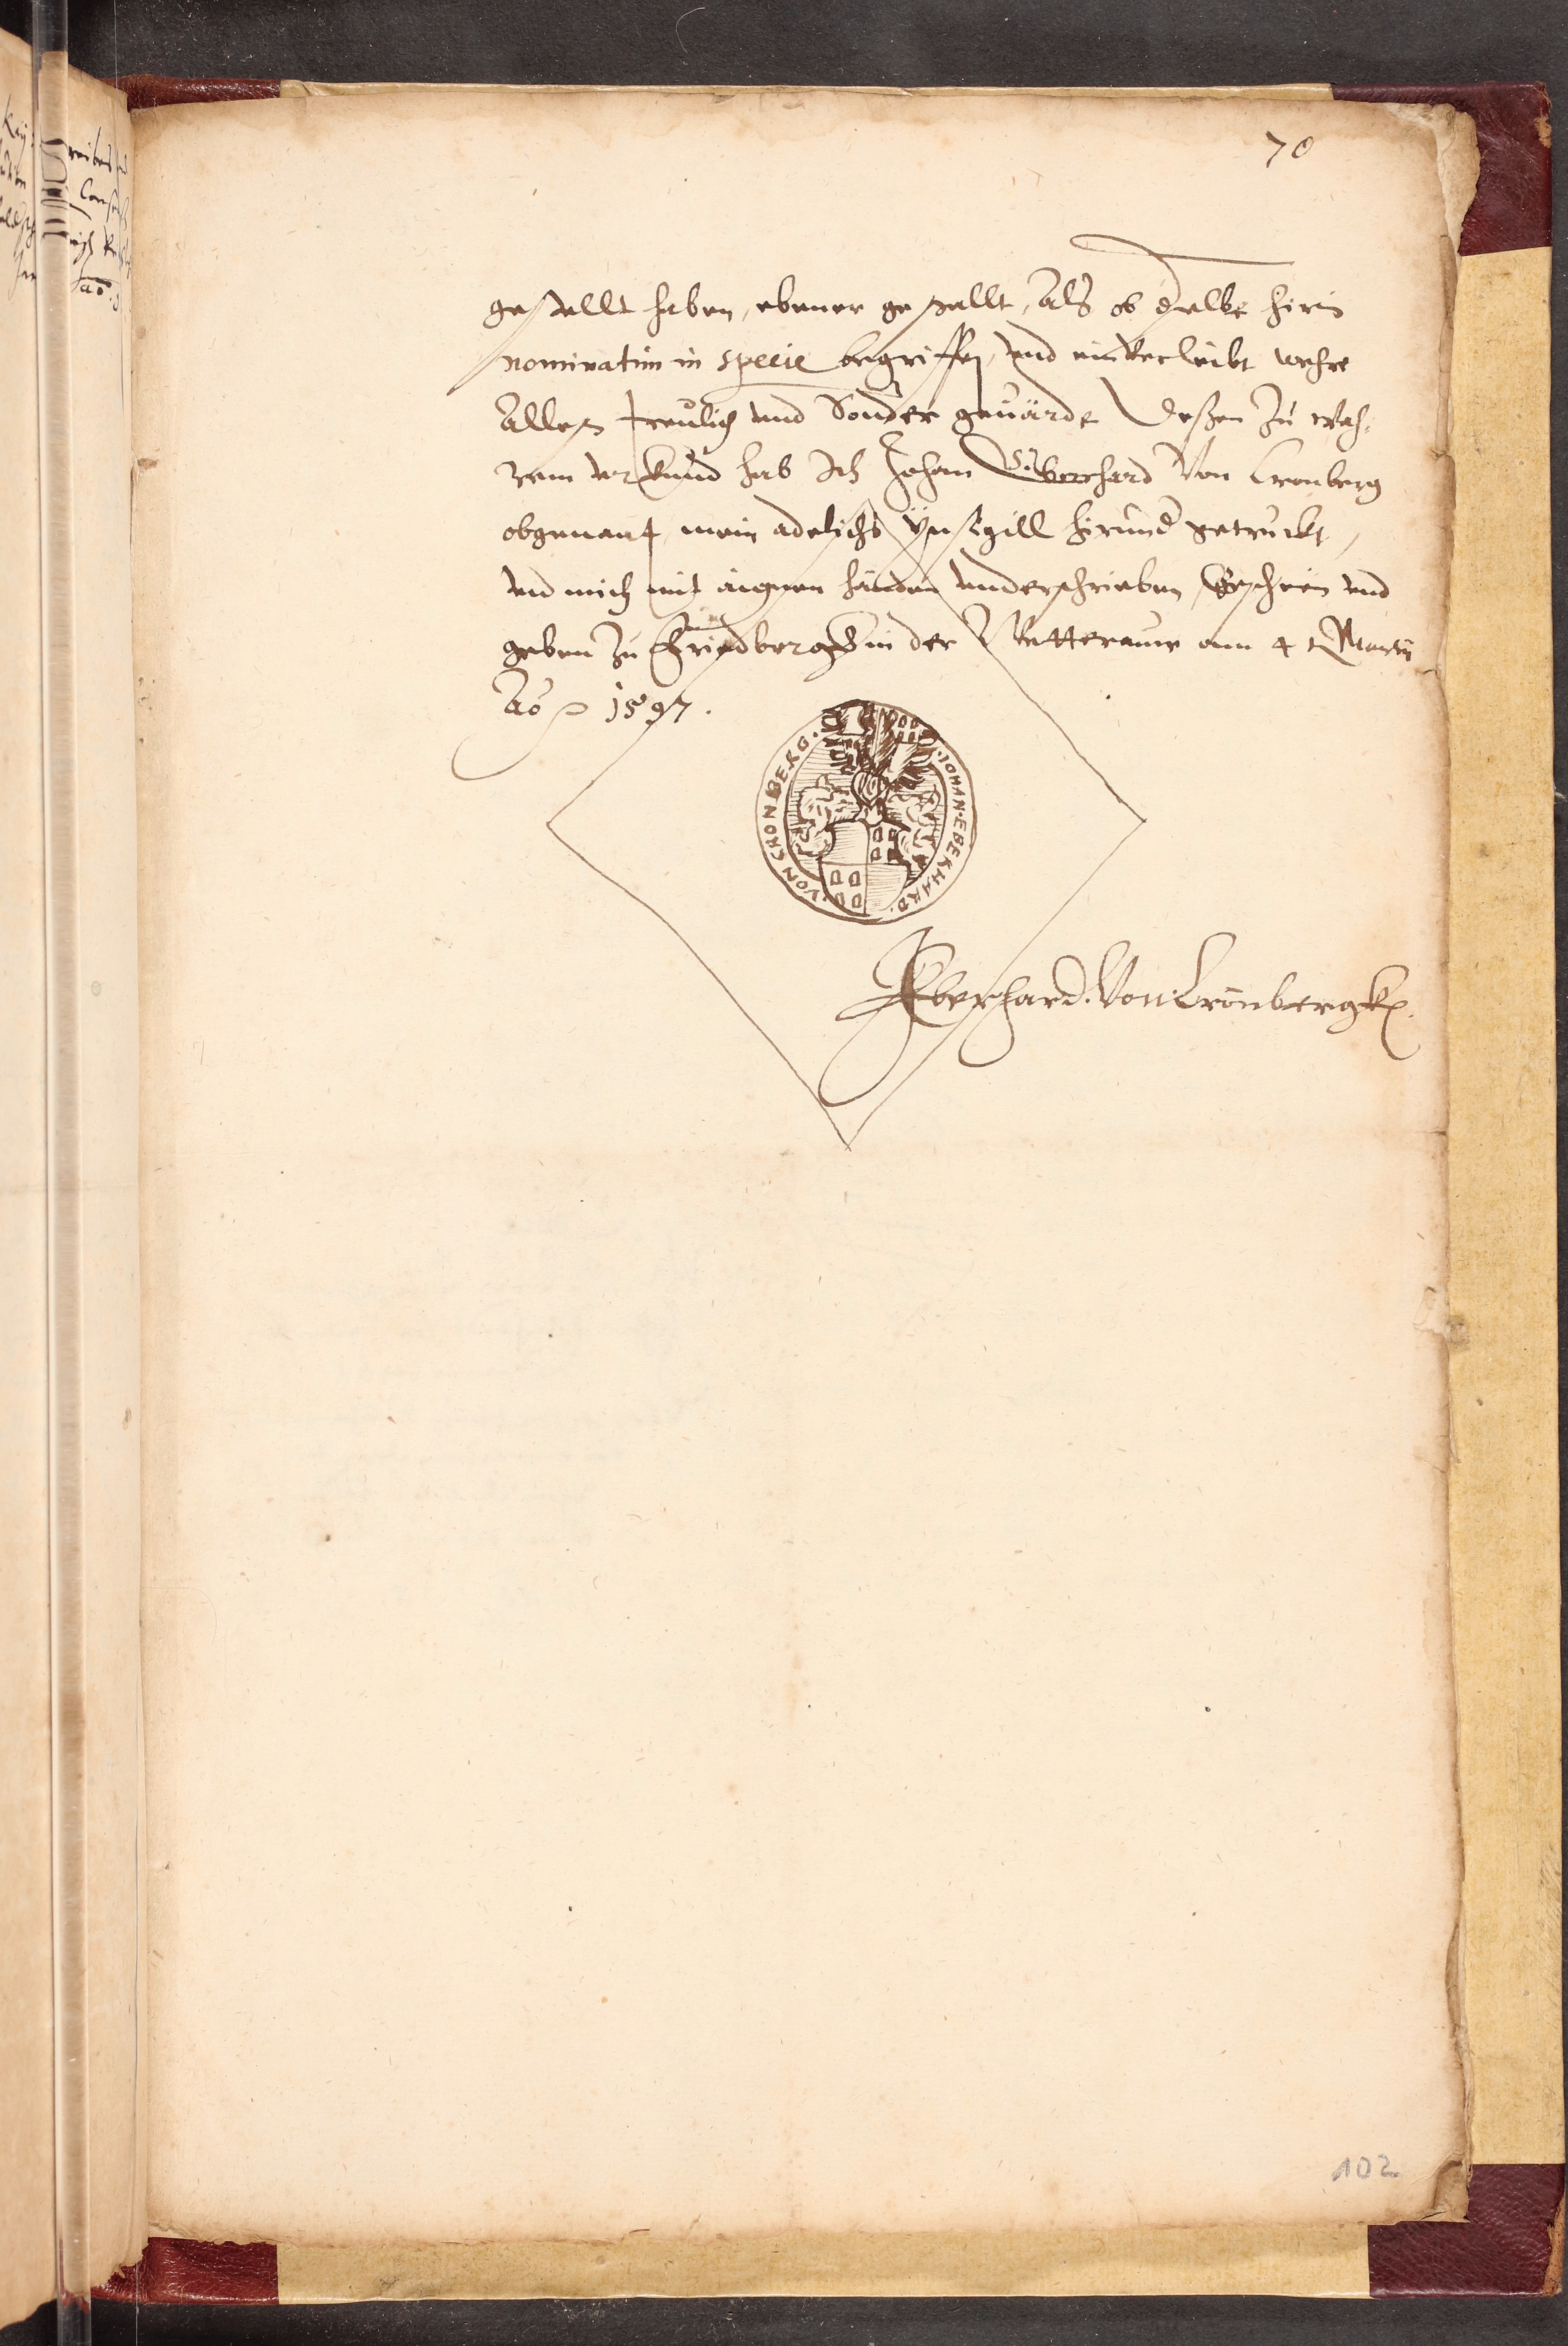 70
gestallt haben, ebener gestallt, Als ob dselbe hirin
nominatim in specie begriffen, und einverleibt wehre
Alles treulich und Sonder geuärde Deßen Zu wah¬
rem urkund hab Ich Johan Eberhard Von Cronberg
obgenant mein adelichs Insigill hirund getruckt,
und mich mit aignen handen underschrieben, Geschein und
geben Zu Friedberg in der Wetteraw am 4t Martii
Ao 1597.
·JOHAN·EBERHARD·VON CRONBERG·
Eberhard. Von Cronbergk
102